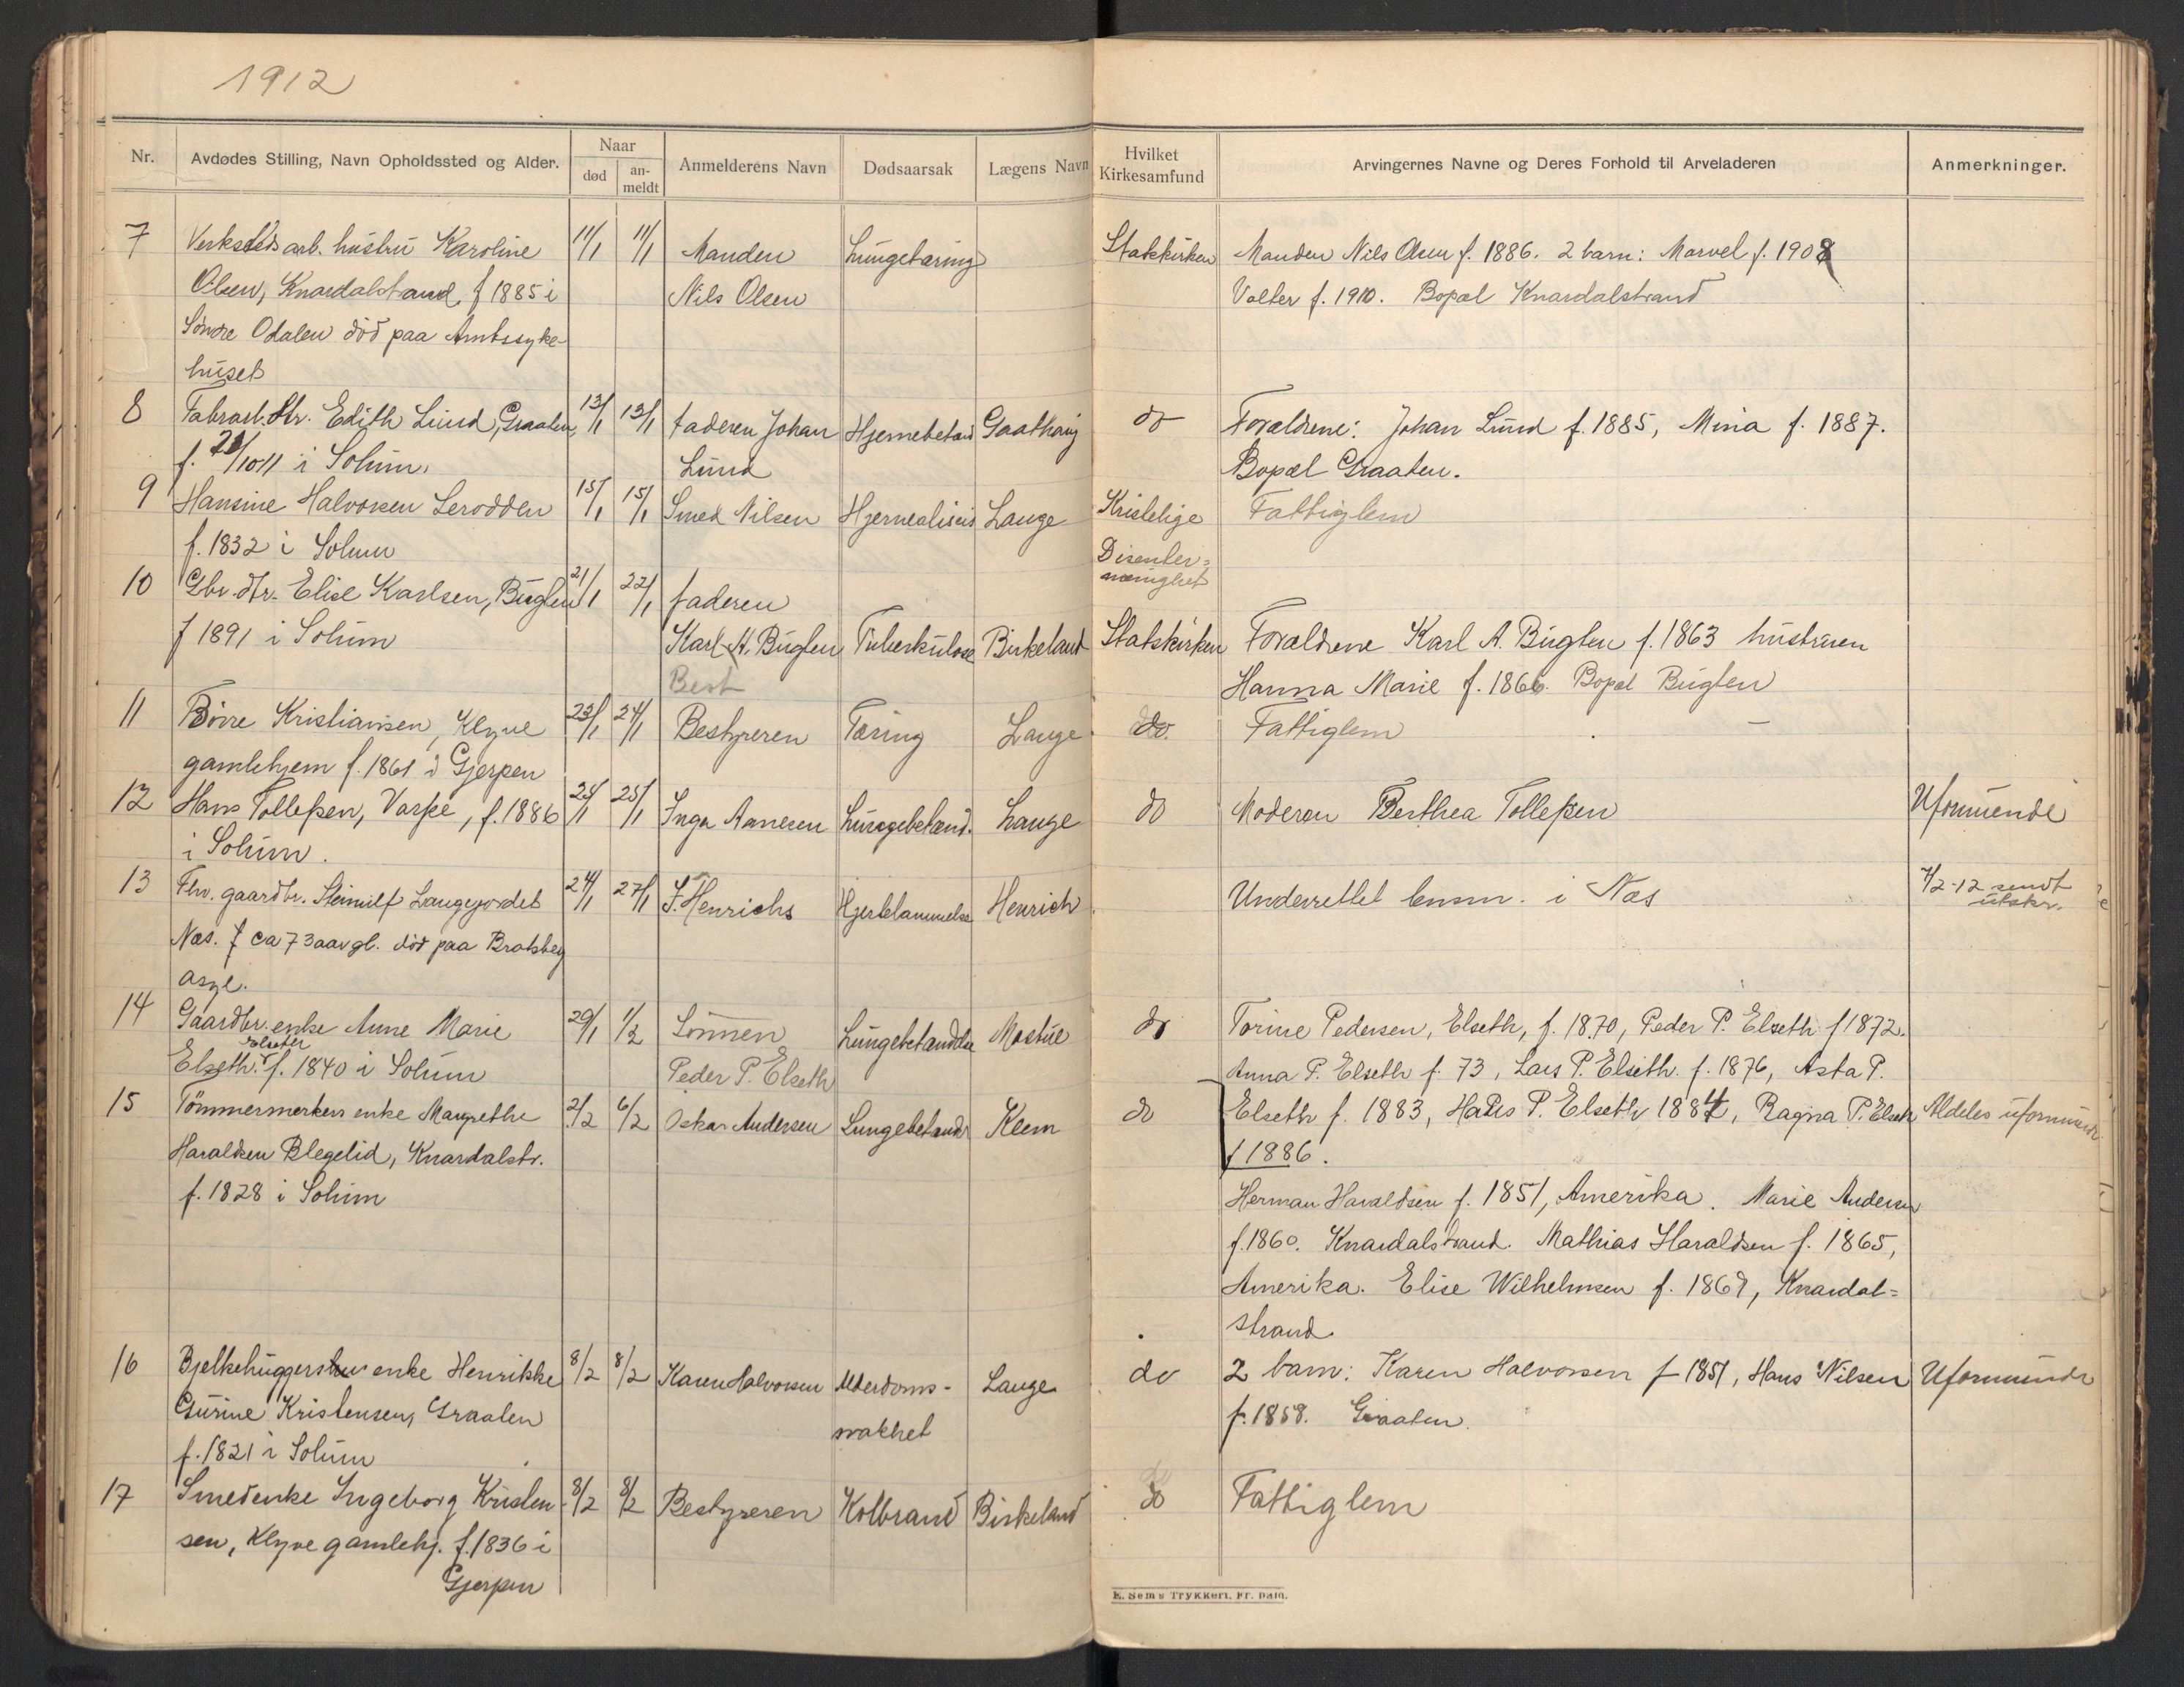 1912
Nr.
Avdødes Stilling, Navn Opholdssted og Alder.
Naar
død
an-
meldt
Anmelderens Navn
Dødsaarsak
Lægens Navn
Hvilket
Kirkesamfund
Arvingernes Navne og Deres Forhold til Arveladeren
Anmerkninger.
7 Verksteds arb. hustru Karoline 11/1 11/1 Manden Lungetæring Statskirken Manden Nils Olsen f. 1886. 2 barn: Marvel f. 1908
Olsen, Knardalstrand, f 1885 i Nils Olsen Valter f. 1910. Bopæl Knardalstrand
Söndre Odalen död paa Amtssyke-
huset
8 Fabrarb. dtr. Edith Lund, Graaten, 13/1 13/1 faderen Johan Hjernebetænd Gaathaug do Forældrene: Johan Lund f. 1885, Mina f. 1887.
f. /10-11 i Solum. Lund Bopæl Graaten.
9 Hansine Halvorsen Lerodden 15/1 15/1 Smed Nilsen Lange Kristelige Fattiglem
f. 1832 i Solum Disenter=
menighet
10 Gbr. dtr. Elise Karlsen, Buglen 21/1 22/1 faderen
f 1891 i Solum Karl A. Buglen Tuberkulose Birkeland Statskirken Forældrene Karl A. Buglen f. 1863 hustruen
Best Hanna Marie f. 1866. Bopæl Buglen
11 Börre Kristiansen, Klyve 23/1 24/1 Bestyreren Tæring Lange do. Fattiglem —
gamlehjem f. 1861 i Gjerpen
12 Hans Tollefsen, Varpe, f. 1886 24/1 25/1 Inga Aanesen Lungebetænd. Lange do Moderen Berthea Tollefsen Uformuende
i Solum.
13 Flv. gaardbr. Langejordet 24/1 27/1 J. Henrichs Hjertelammelse Henrich Underrettet lensm. i Næs /2-12 sendt
utskr.
Næs. f ca 73 aar gl. död paa Bratsberg
asyl.
14 Gaardbr. enke Anne Marie 29/1 1/2 Sönnen Lungebetændelse Mostue do Torine Pedersen, Elseth, f. 1870, Peder P. Elseth f 1872.
Elseth
Elseth. f. 1840 i Solum Peder P. Elseth Anna P. Elseth f. 73, Lars P. Elseth. f. 1876, Asta P.
15 Tömmermerkers enke Margrethe 2/2 6/2 Oskar Andersen Lungebetænd Klem do Elseth f. 1883, Hans P. Elseth 1884, Ragna P. Elseth Aldeles uformuende
Haraldsen Blegelid, Knardalstr. f 1886.
f. 1828 i Solum Herman Haraldsen f. 1851, Amerika. Marie Andersen
f. 1860. Knardalstrand. Mathias Haraldsen f. 1865,
Amerika. Elise Wilhelmsen f. 1869, Knardal=
strand.
16 Bjelkehuggers enke Henrikke 8/2 8/2 Karen Halvorsen Alderdoms- Lange do 2 barn: Karen Halvorsen f 1851, Hans Nilsen Uformuende
Gurine Kristensen, Graaten svakhet f. 1858. Graaten.
f. 1821 i Solum
17 Smedenke Ingeborg Kristen 8/2 8/2 Bestyreren Kolbrand Birkeland do Fattiglem
sen, Klyve gamlehj. f. 1836 i
Gjerpen
E. Sem's Trykkeri, Fr.hald.